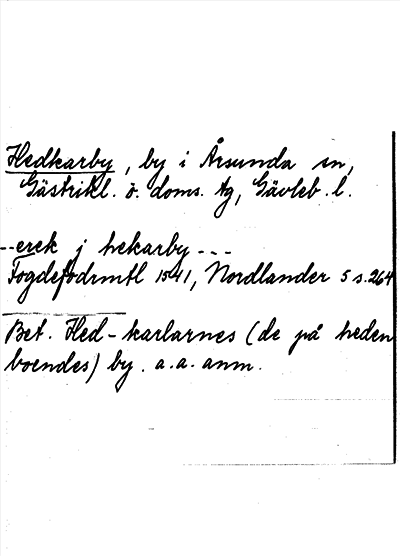 Hedkarby, by i Årsunda sn,
Gästrikl. ö. doms. tg, Gävleb. l.
--erek j hekarby ---
Fogdefodrmtl 1541, Nordlander 5 s. 264
Bet. Hed-karlarnes (de på heden
boendes) by. a.a. anm.